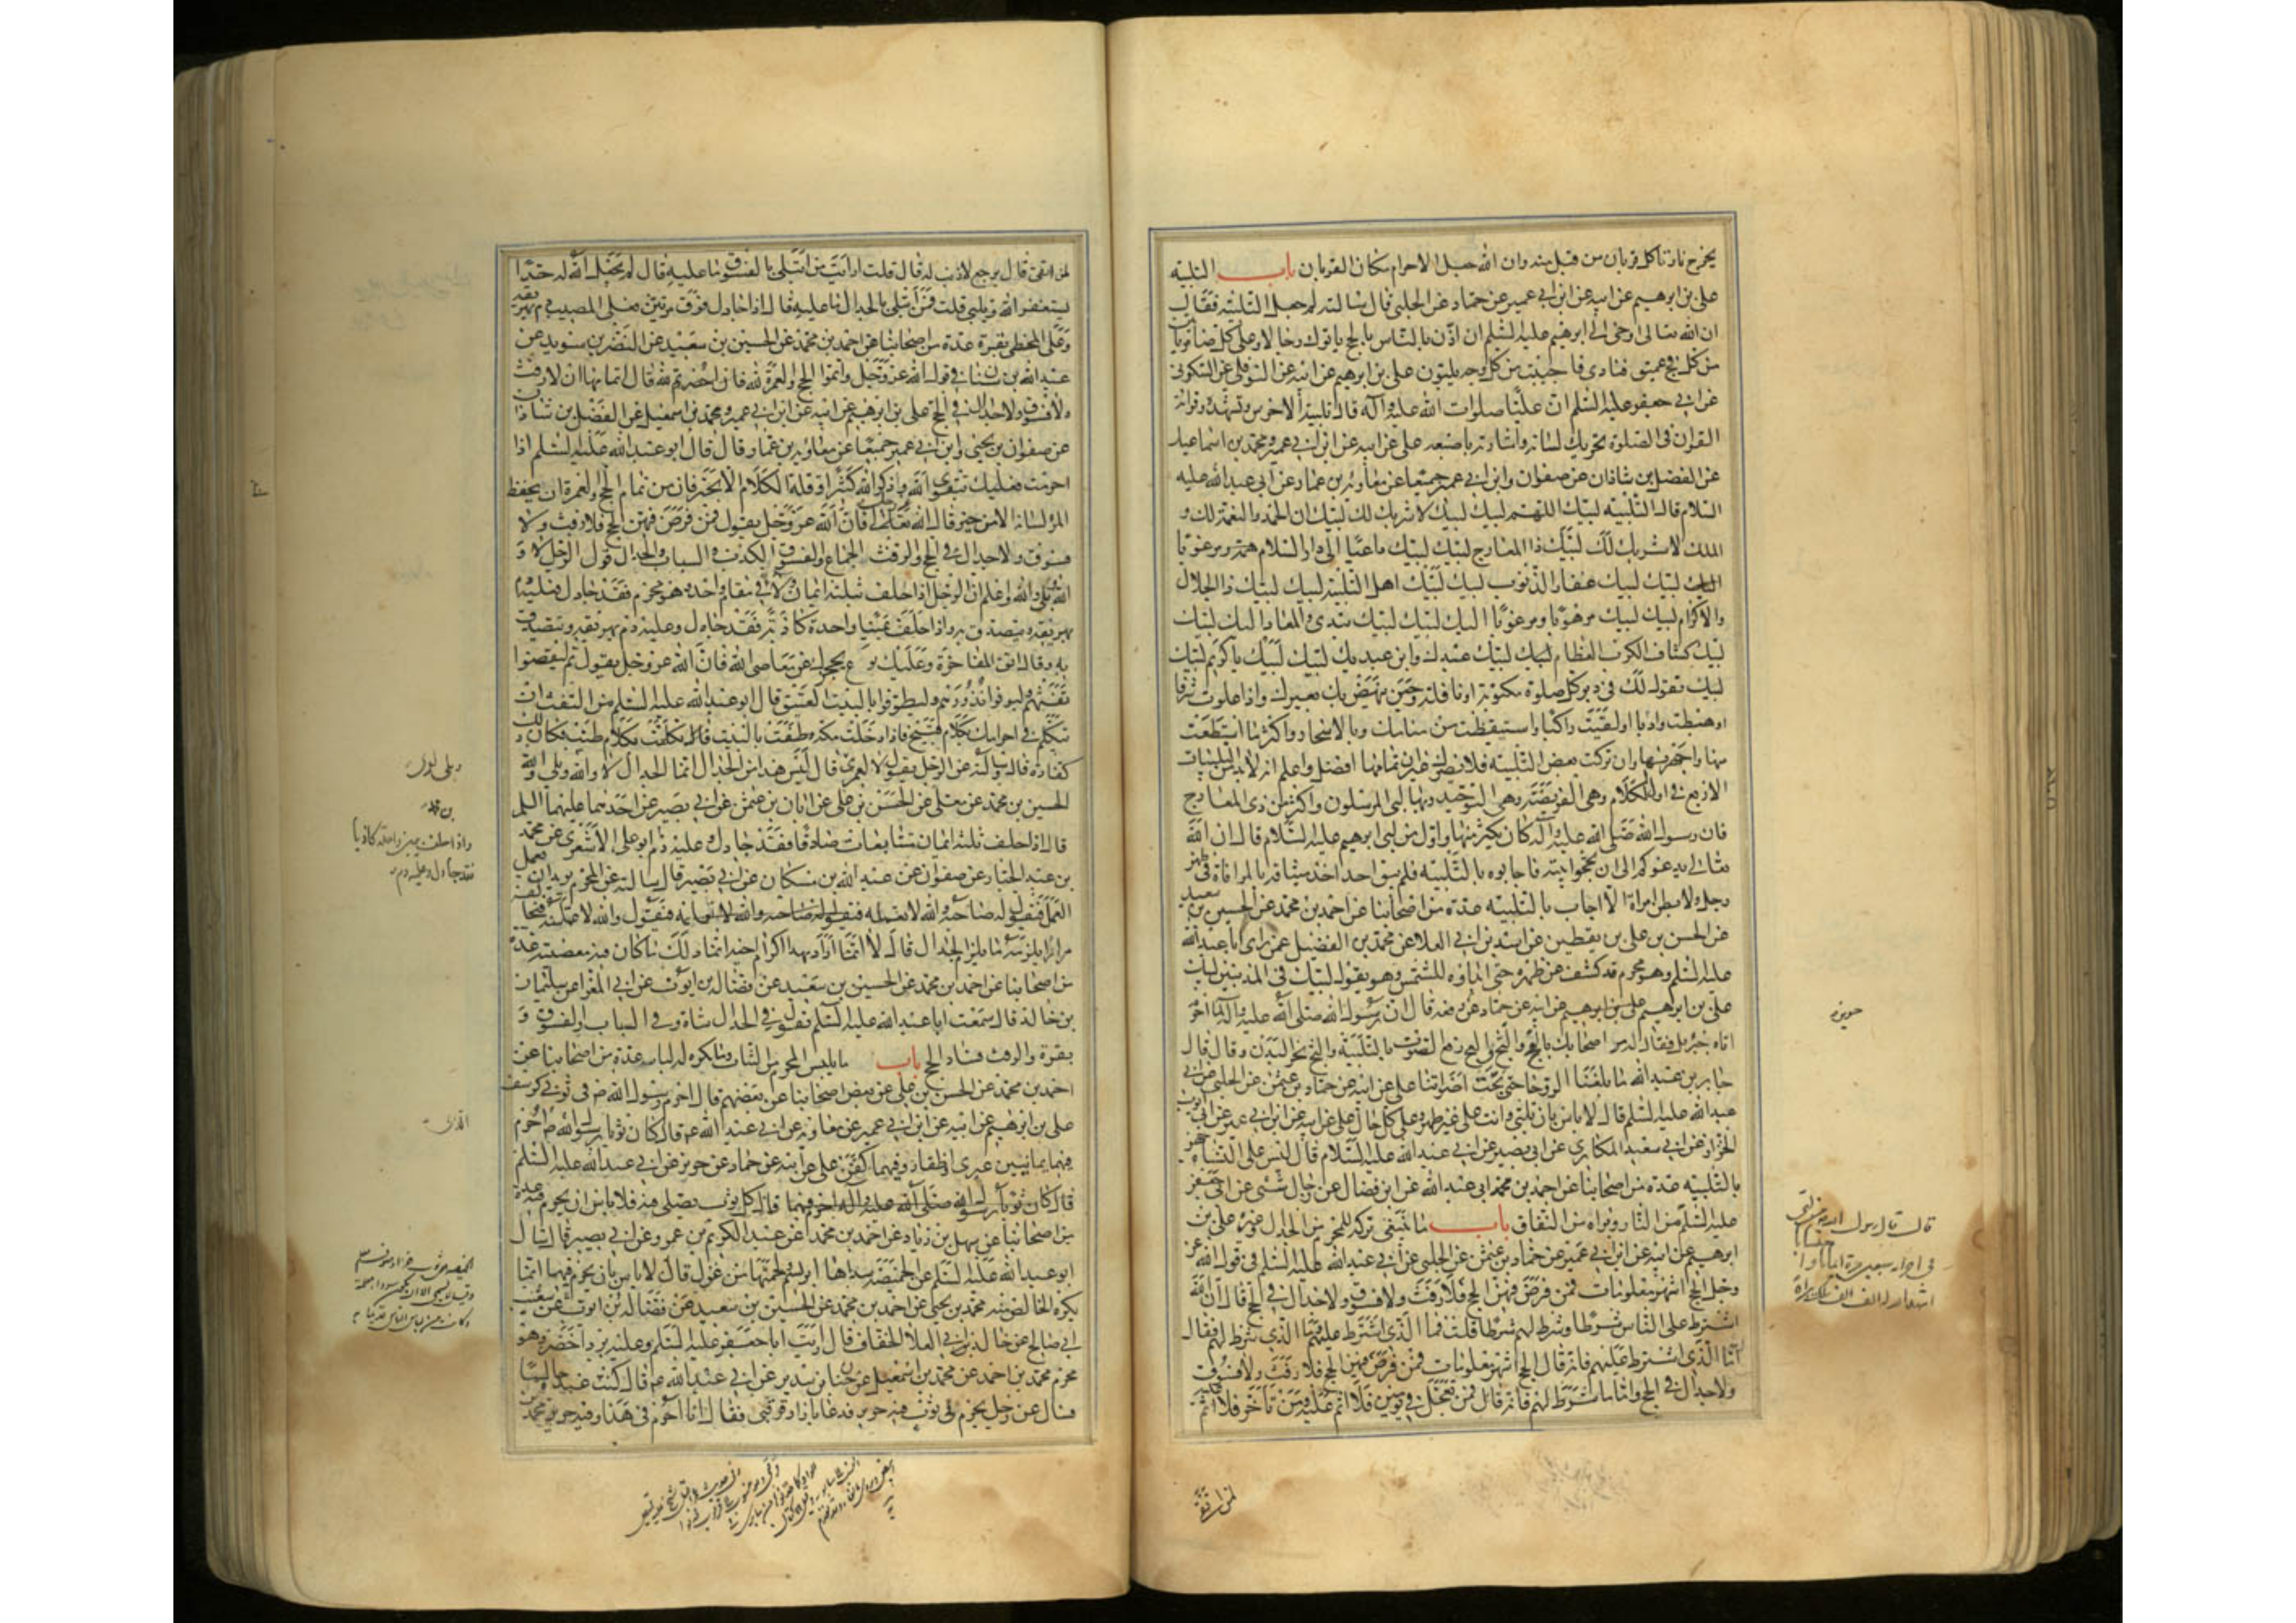 يخرج نار تأكل قربان من قبل منه وان الله جعل الاحرام مكان القربان باب التلبية
علي بن ابرهيم عن ابيه عن ابن ابي عمير عن حماد عن الحلبي قال سالته لم جعل التلبية فقال
ان الله تعالى اوحى الى ابرهيم عليه السلم ان اذن بالناس بالحج ياتوك رجالا وعلى كل ضامر ياتين
من كل فج عميق فنادى فاجيب من كل وجه يلبون علي بن ابرهيم عن ابيه عن النوفلي عن السكوني
عن ابي جعفر عليه السلم ان عليا صلوات الله عليه وآله قال تلبية الاخرس وتشهده وقراءة
القران في الصلوة تحريك لسانه واشارته باصبعه علي عن ابيه عن ابن ابي عمير ومحمد بن اسماعيل
عن الفضل بن شاذان عن صفوان وابن ابي عمير جميعا عن معاوية بن عمار عن ابي عبد الله عليه
السلام قال التلبية لبيك اللهم لبيك لبيك لا شريك لك لبيك ان الحمد والنعمة لك و
الملك لا شريك لك لبيك ذا المعارج لبيك لبيك داعيا الى دار السلام
لبيك لبيك غفار الذنوب لبيك لبيك اهل التلبية لبيك لبيك ذا الجلال
والاكرام لبيك لبيك مرهوبا ومرعوبا اليك لبيك لبيك تبدئ والمعاد اليك لبيك
لبيك كشاف الكرب العظام لبيك لبيك عبدك وابن عبديك لبيك لبيك ياكريم لبيك
لبيك تقول ذلك في دبر كل صلوة مكتوبة او نافلة وحين ينهض بك بعيرك واذا علوت شرفا
او هبطت واديا او لقيت راكبا واستيقظت من منامك وبالاسحار واكثر ما استطعت
منها واجهر بها وان تركت بعض التلبية فلا يضرك غير ان تمامها افضل واعلم انه لابد من التلبيات
الاربع في اول الكلام وهي الفريضة وهي التوحيد وبها لبى المرسلون واكثر من ذي المعارج
فان رسول الله صلى الله عليه وآله كان يكثر منها واول من لبى ابرهيم عليه السلام قال ان الله
تعالى يدعوكم الى ان تحجوا بيته فاجابوه بالتلبية فلم يبق احد اخذ ميثاقه بالموافاة في ظهر
رجل ولا بطن امراة الا اجاب بالتلبية عدة من اصحابنا عن احمد بن محمد عن الحسين بن سعيد
عن الحسن بن علي بن يقطين عن اسد بن ابي العلا عن محمد بن الفضيل عمن راى ابا عبد الله
عليه السلم وهو محرم قد كشف عن ظهره حتى ابداه للشمس وهو يقول لبيك في المذنبين لبيك
علي بن ابرهيم عن ابيه عن حماد عن حريز رفعه قال ان رسول الله صلى الله عليه وآله لما احرم
اتاه جبريل فقال له مر اصحابك بالعج والثج والعج رفع الصوت بالتلبية والثج نحر البدن وقال قال
جابر بن عبد الله ما بلغنا الروحا حتى بحت اصواتنا علي عن ابيه عن حماد بن عثمن عن الحلبي عن ابي
عبد الله عليه السلم قال لا باس بان تلبي وانت على غير طهر وعلى كل حال علي عن ابيه عن ابن ابي عمير عن ابي ايوب
الخزاز عن ابي سعيد المكاري عن ابي بصير عن ابي عبد الله عليه السلام قال ليس على النساء جهر
بالتلبية عدة من اصحابنا عن احمد بن محمد ابي عبد الله عن ابن فضال عن رجال شتى عن ابي جعفر
عليه السلم من النار وبراءة من النفاق باب ما ينبغي تركه للمحرم من الجدال وغيره علي بن
ابرهيم عن ابيه عن ابن ابي عمير عن حماد بن عثمن عن الحلبي عن ابي عبد الله عليه السلم في قول الله عز
وجل الحج اشهر معلومات فمن فرض فيهن الحج فلا رفث ولا فسوق ولا جدال في الحج قال ان الله
اشترط على الناس شرطا وشرط لهم شرطا قلت فما الذي اشترط عليهم وما الذي شرط لهم فقال
اما الذي اشترط عليهم فانه قال الحج اشهر معلومات فمن فرض فيهن الحج فلا رفث ولا فسوق
ولا جدال في الحج واما ما شرط لهم فانه قال فمن تعجل في يومين فلا اثم عليه ومن تاخر فلا اثم عليه
لمن اتقى
حريز
قال قال رسول الله من لبى
في احرامه سبعين مرة ايمانا واحتسابا
اشهد الله له الف الف ملك براءة
لمن اتقى قال يرجع لا ذنب له قال قلت ارايت من ابتلي بالفسوق ما عليه قال لم يجعل الله له حدا
يستغفر الله ويلبي قلت فمن ابتلي بالجدال ما عليه قال اذا جادل فوق مرتين فعلى المصيب دم يهريقه
وعلى المخطئ بقرة عدة من اصحابنا عن احمد بن محمد عن الحسين بن سعيد عن النضر بن سويد عن
عبد الله بن سنان في قول الله عز وجل واتموا الحج والعمرة لله فان احصرتم لله قال اتمامها ان لا رفث
ولا فسوق ولا جدال في الحج علي بن ابرهيم عن ابيه عن ابن ابي عمير ومحمد بن اسمعيل عن الفضل بن شاذان
عن صفوان بن يحيى وابن ابي عمير جميعا عن معاوية بن عمار وقال قال ابو عبد الله عليه السلم اذا
احرمت فعليك بتقوى الله واذكر الله كثيرا وقلة الكلام الا بخير فان من تمام الحج والعمرة ان يحفظ
المرء لسانه الا من خير قال الله تعالى فان الله عز وجل يقول فمن فرض فيهن الحج فلا رفث ولا
فسوق ولا جدال في الحج والرفث الجماع والفسوق الكذب والسباب والجدال قول الرجل لا و
الله وبلى والله واعلم ان الرجل اذا حلف بثلثة ايمان ولاء في مقام واحد وهو محرم فقد جادل فعليه دم
يهريقه ويتصدق به واذا حلف يمينا واحدة كاذبة فقد جادل وعليه دم يهريقه ويتصدق
به وقال اتق المفاخرة وعليك بورع يحجزك عن معاصي الله فان الله عز وجل يقول ثم ليقضوا
تفثهم وليوفوا نذورهم وليطوفوا بالبيت العتيق قال ابو عبد الله عليه السلم من التفث ان
تتكلم في احرامك بكلام قبيح فاذا دخلت مكة وطفت بالبيت تكلمت بكلام طيب فكان ذلك
كفارة قال وسالته عن الرجل يقول لا لعمري قال ليس هذا من الجدال انما الجدال لا والله وبلى والله
الحسين بن محمد عن معلى عن الحسن بن علي عن ابان بن عثمن عن ابي بصير عن احدهما عليهما السلم
قال اذا حلف ثلثة ايمان متتابعات صادقا فقد جادل وعليه دم ابو علي الاشعري عن محمد
بن عبد الجبار عن صفوان عن عبد الله بن مسكان عن ابي بصير قال سالته عن المحرم يريد ان يعمل
العمل فيقول له صاحبه والله لا تعمله فيقول والله لاعملنه فيحالفه
مرارا يلزمه ما يلزم الجدال قال لا انما اراد بهذا اكرام اخيه انما ذلك ما كان فيه معصية عدة
من اصحابنا عن احمد بن محمد عن الحسين بن سعيد عن فضالة بن ايوب عن ابي المغرا عن سليمان
بن خالد قال سمعت ابا عبد الله عليه السلم يقول في الجدال شاة وفي السباب والفسوق
بقرة والرفث فساد الحج باب ما يلبس المحرم من الثياب وما يكره له لباسه عدة من اصحابنا عن
احمد بن محمد عن الحسن بن علي عن بعض اصحابنا عن بعضهم قال احرم رسول الله ص في ثوبي كرسف
علي بن ابرهيم عن ابيه عن ابن ابي عمير عن معاوية عن ابي عبد الله ع قال كان ثوبا رسول الله ص احرم
فيهما يمانيين عبري اظفار وفيهما كفن علي عن ابيه عن حماد عن حريز عن ابي عبد الله عليه السلم
قال كل ثوب يصلى فيه فلا باس ان يحرم فيه عدة
من اصحابنا عن سهل بن زياد عن احمد بن محمد عن عبد الكريم بن عمرو عن ابي بصير قال سال
ابو عبد الله عليه السلم عن الخميصة سداها ابريسم لحمتها من غزل قال لا باس بان يحرم فيها انما
يكره الخالص منه محمد بن يحيى عن احمد بن محمد عن الحسين بن سعيد عن فضالة بن ايوب عن شعيب
ابي صالح عن خالد بن ابي العلا الخفاف قال رايت ابا جعفر عليه السلم وعليه برد اخضر وهو
محرم محمد بن احمد عن محمد بن اسمعيل عن حنان بن سدير عن ابي عبد الله ع قال كنت عنده جالسا
فسال عن رجل يحرم في ثوب فيه حرير فدعا بازار قرقبي فقال انا احرم في هذا وفيه حرير محمد بن
واذا حلف يمين واحدة كاذبا
فقد جادل وعليه دم